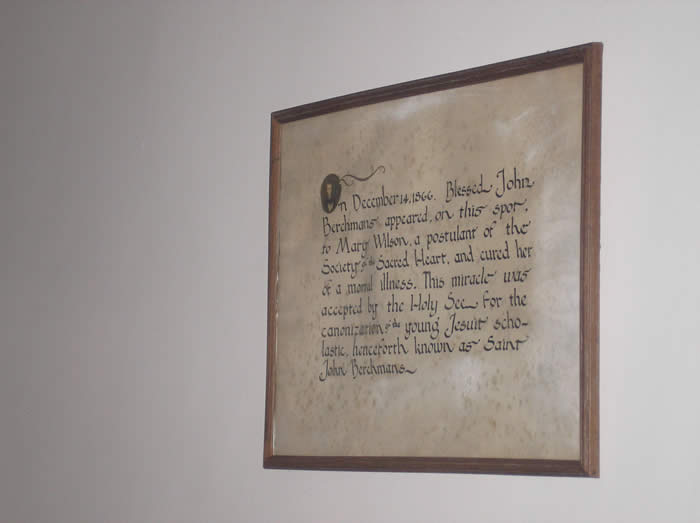 On December 14, 1866, Blessed John
Berchmans appeared, on this spot,
to Mary Wilson, a postulant of the
Society of the Sacred Heart, and cured her
of a mortal illness. This miracle was
accepted by the Holy See for the
canonization of the young Jesuit scho-
lastic, henceforth known as Saint
John Berchmans